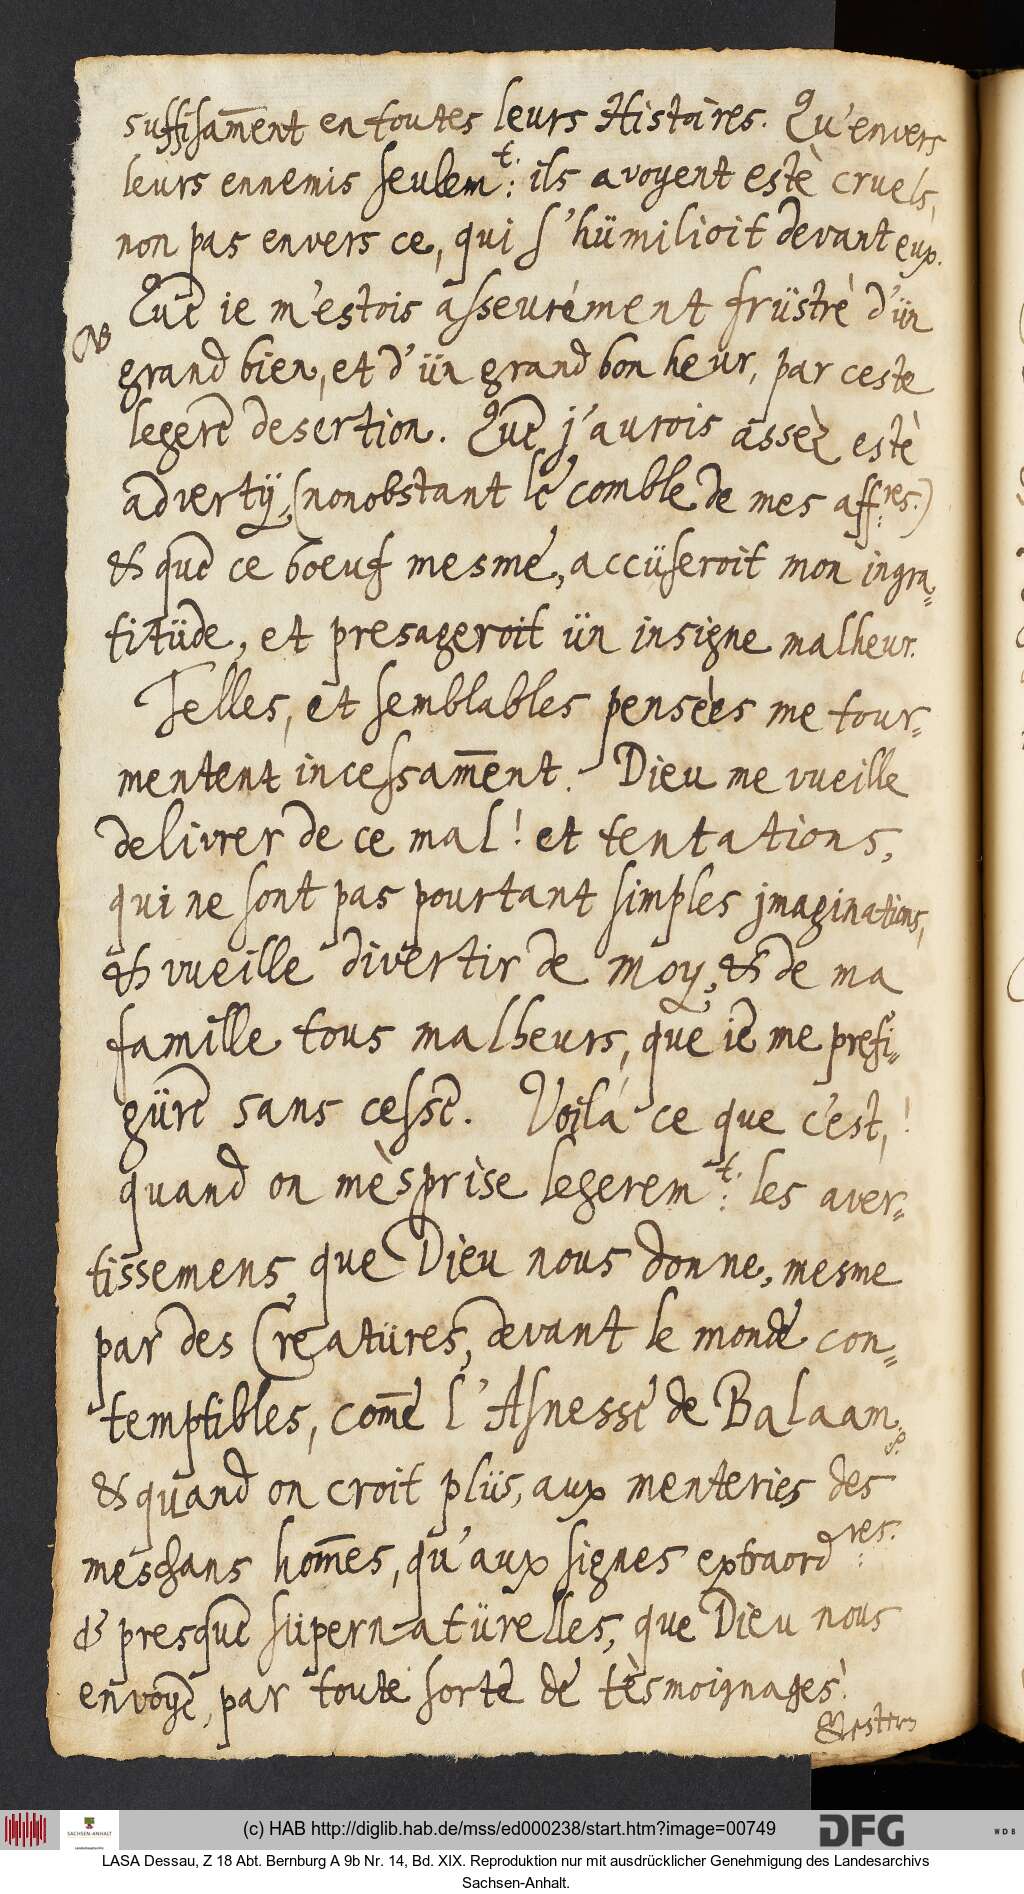 suffisam̄ent en toutes leurs Histoires. Qu'envers
leurs ennemis seulem:t: ils avoyent estè cruels,
non pas envers ce, qui s'hümilioit devant eux.
Que ie m'estois asseurément früstré d'ün
NB
grand bien, et d'ün grand bon heur, par ceste
legere desertion. Que j'aurois assèz estè
advertÿ, (nonobstant le comble de mes aff:res.)
& que ce boeuf mesme, accüseroit mon ingra=
titüde, et presageroit ün insigne malheur.
Telles, et semblables pensèes me tour=
mentent incessam̄ent. Dieu me vueille
delivrer de ce mal! et tentations,
qui ne sont pas pourtant simples jmaginations,
& vueille divertir de moy, & de ma
famille tous malheurs, que ie me prefi=
güre sans cesse. Voilá ce que c'est,!
quand on mèsprise legerem:t: les aver=
tissemens, que Dieu nous donne, mesme
par des Creatüres, devant le monde con=
temptibles, com̄e l'Asnesse de Balaam,
& quand on croit plüs, aux menteries des
meschans hom̄es, qu'aux signes extraord:res.
& presque supernatürelles, que Dieu nous
envoye, par toute sorte de tèsmoignages!
Gestern
(c) HAB http://diglib.hab.de/mss/ed000238/start.htm?image=00749
SACHSEN-ANHALT
DFG
WDB
LASA Dessau, Z 18 Abt. Bernburg A 9b Nr. 14, Bd. XIX. Reproduktion nur mit ausdrücklicher Genehmigung des Landesarchivs
Sachsen-Anhalt.